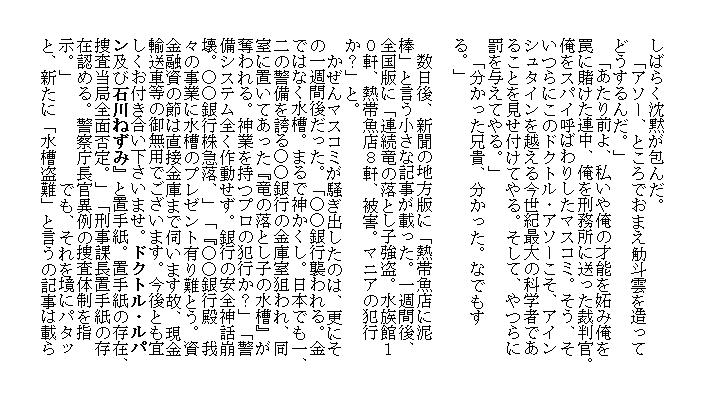 しばらく沈黙が包んだ。
「アソー、ところでおまえ觔斗雲を造って
どうするんだ。」
「あたり前よ、私いや俺の才能を妬み俺を
罠に賭けた連中、俺を刑務所に送った裁判官。
俺をスパイ呼ばわりしたマスコミ。そう、そ
いつらにこのドクトル・アソーこそ、アイン
シュタインを越える今世紀最大の科学者であ
ることを見せ付けてやる。そして、やつらに
罰を与えてやる。」
「分かった兄貴、分かった。なでもす
る。」
数日後、新聞の地方版に「熱帯魚店に泥
棒」と言う小さな記事が載った。一週間後、
全国版に「連続竜の落とし子強盗。水族館１
０軒、熱帯魚店８軒、被害。マニアの犯行
か？」と。
かぜんマスコミが騒ぎ出したのは、更にそ
の一週間後だった。「〇〇銀行襲われる。金
ではなく水槽。まるで神かくし。日本でも一、
二の警備を誇る〇〇銀行の金庫室狙われ、同
室に置いてあった『竜の落とし子の水槽』が
奪われる。神業を持つプロの犯行か？」「警
備システム全く作動せず。銀行の安全神話崩
壊。〇〇銀行株急落。」「『〇〇銀行殿　我
々の事業に水槽のプレゼント有り難とう。資
金融資の節は直接金庫まで伺います故、現金
輸送車等の御無用でございます。今後とも宜
しくお付き合い下さいませ。ドクトル・ルパ
ン及び石川ねずみ』と置手紙。置手紙の存在、
捜査当局全面否定。」「刑事課長置手紙の存
在認める。警察庁長官異例の捜査体制を指
示。」　　　　でも、それを境にパタッ
と、新たに「水槽盗難」と言うの記事は載ら